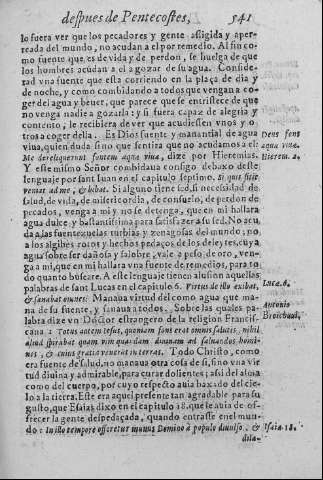 despues de Pentecostes, 541
lo fuera ver que los pecadores y gente afligida y aper-
reada del mundo, no acudan a el por remedio. Al fin co-
mo fuente que es de vida y de perdon, se huelga de que
los hombres acudan a el a gozar de su agua. Conside-
rad vna fuente que esta corriendo en la plaça de dia y
de noche, y como combidando a todos que vengan a co-
ger del agua y beuer, que parece que se entristece de que
no venga nadie a gozarla: y si fuera capaz de alegria y
contento, le recibiera de ver que acudiessen vnos y o-
tros a coger della. Es Dios fuente y manantial de agua
viua, quien duda sino que sentira que no acudamos a el:
Me dereliquerunt fontem aquæ viuæ, dize por Hieremias.
Y este mismo Señor combidaua consigo debaxo deste
lenguaje por san Iuan en el capitulo septimo. Si quis sitit
veniat ad me, & bibat. Si alguno tiene sed, si necessidad de
salud, de vida, de misericordia, de consuelo, de perdon de
pecados, venga a mi y no se detenga, que en mi hallara
agua dulce y bastantissima para satisfazer a su sed. No acu-
da a las fuentezuelas turbias y zenagosas del mundo; no
a los algibes rotos y hechos pedaços de los deleytes, cuya
agua sobre ser dañosa y salobre, vale a peso de oro, ven-
ga a mi, que en mi hallara vna fuente de remedios, para to
do quanto buscare. A este lenguaje tienen alusion aquellas
palabras de sant Lucas en el capitulo 6. Virtus de illo exibat,
& sanabat omnes. Manaua virtud del como agua que ma-
na de su fuente, y sanaua a todos. Sobre las quales pa-
labra dize vn Doctor estrangero de la religion Francis-
cana: Totus autem Iesus, quantum fons erat omnis salutis, nihil
aliud spirabat quam vim quandam diuinam ad saluandos homi-
nes, & cuius gratia venerat in terras. Todo Christo, como
era fuente de salud, no manaua otra cosa de si, sino vna vir
tud diuina y admirable, para curar dolientes; assi del alma
como del cuerpo, por cuyo respecto auia baxado del cie-
lo a la tierra. Este era aquel presente tan agradable para su
gusto, que Esaias dixo en el capitulo 18. que le auia de of-
frecer la gente despedaçada, quando entrasse en el mun-
do: In illo tempore offeretur munus Domino à populo diuulso, &
dila-
Deus fons
aqua viua.
Hierem. 2.
Lucæ. 6.
Antonio
Broitbaud,
Isaia. 18.